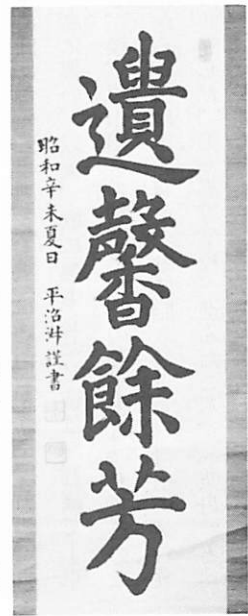 遺馨餘芳
昭和辛未夏日 平沼 謹書